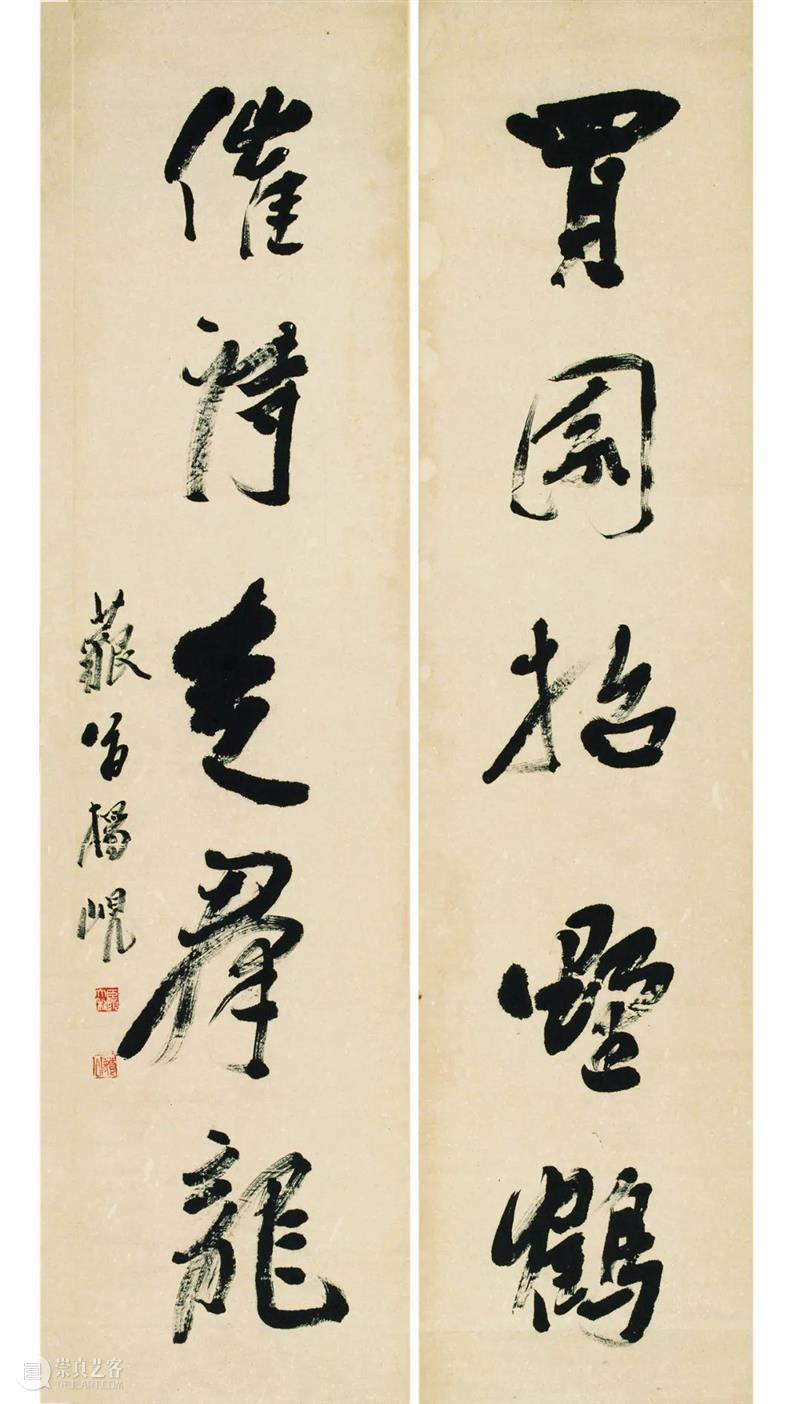 買園招野鶴
催詩走羣龍
藐翁楊峴
崇真艺客
TRUEART.COM